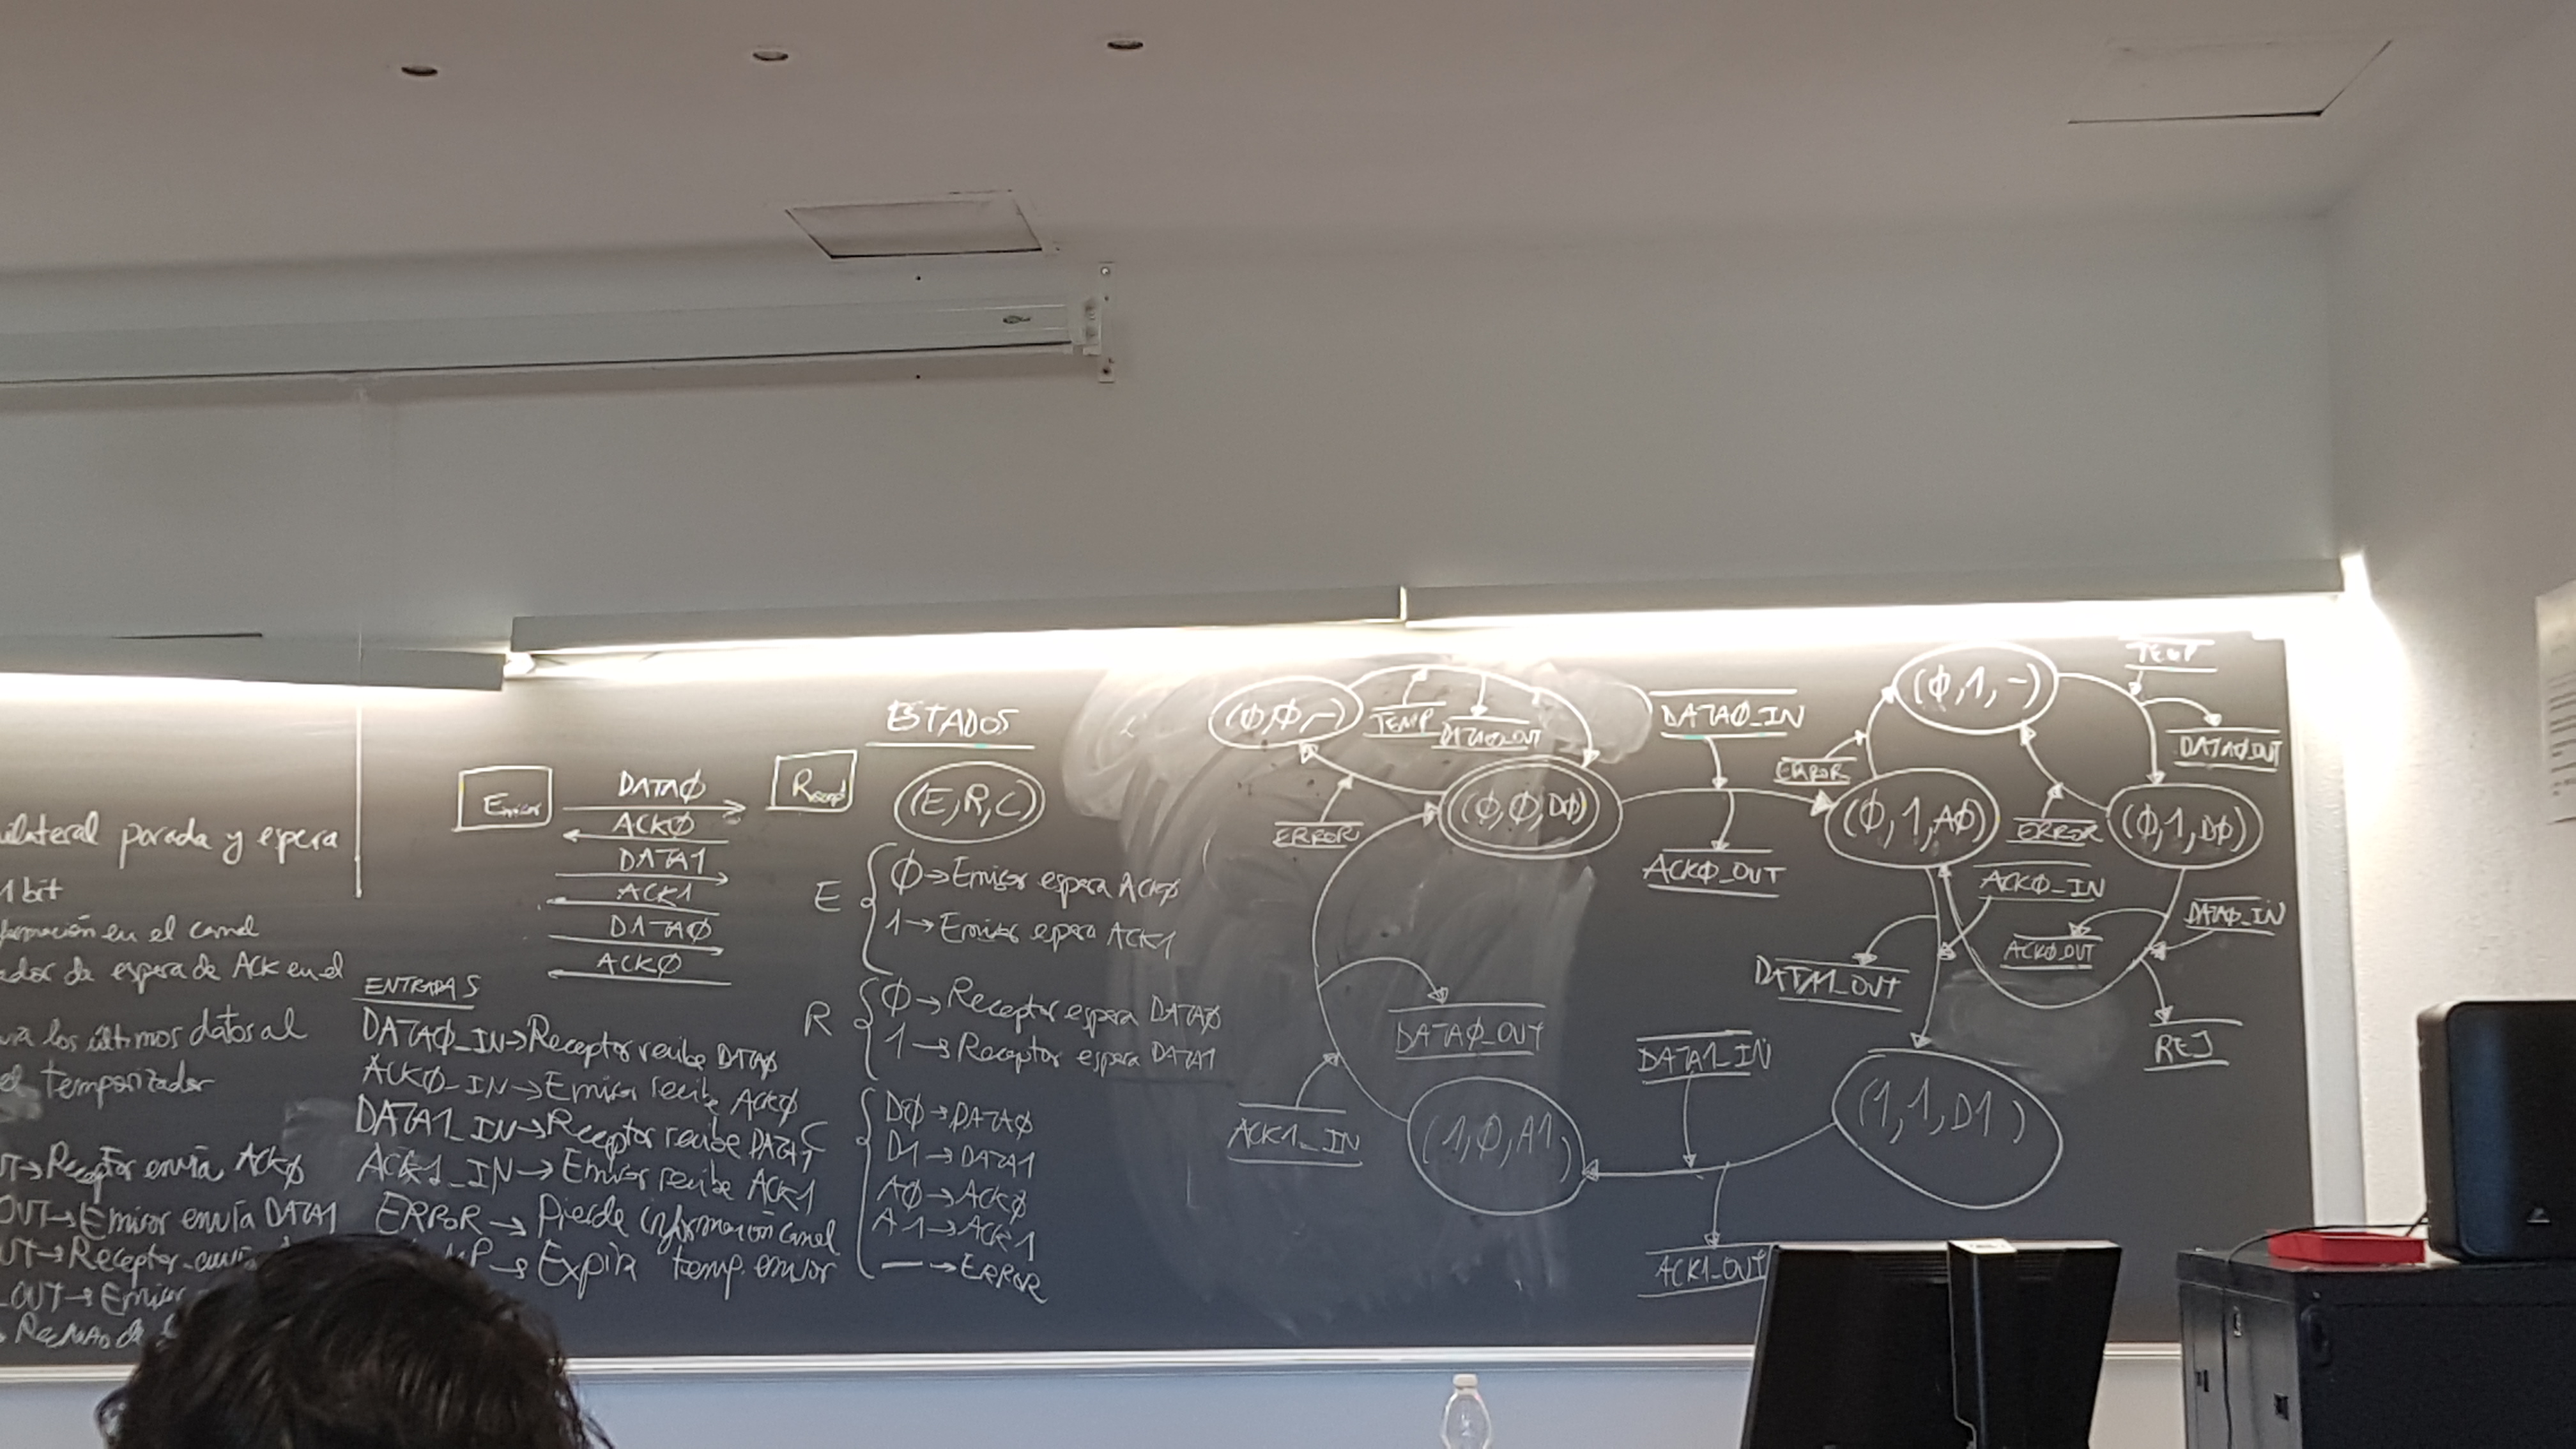 ilateral parada y espera
1 bit
formación en el canal
ador de espera de ACK en el
los últimos datos al
el temporizador
UT→Receptor envía ACKφ
OUT→Emisor envía DATA1
UT→Receptor
_OUT→Emisor
de
Emisor
DATAφ
Recep
ACKφ
DATA1
ACK1
DATAφ
ACKφ
ENTRADAS
DATAφ_IN→Receptor recibe DATAφ
ACKφ_IN→Emisor recibe ACKφ
DATA1_IN→Receptor recibe DATA1
ACK1_IN→Emisor recibe ACK1
ERROR→Pierde información canal
MP→Expira temp. emisor
ESTADOS
(E,R,C)
E
φ→Emisor espera ACKφ
1→Emisor espera ACK1
R
φ→Receptor espera DATAφ
1→Receptor espera DATA1
C
Dφ→DATAφ
D1→DATA1
Aφ→ACKφ
A1→ACK1
—→ERROR
(φ,φ,-)
TEMP
DATAφ_OUT
ERROR
(φ,φ,Dφ)
DATAφ_IN
ACKφ_OUT
ERROR
(φ,1,-)
TEMP
DATAφ_OUT
(φ,1,Aφ)
ERROR
(φ,1,Dφ)
ACKφ_IN
DATAφ_IN
ACKφ_OUT
DATA1_OUT
REJ
DATAφ_OUT
DATA1_IN
ACK1_IN
(1,φ,A1)
(1,1,D1)
ACK1_OUT